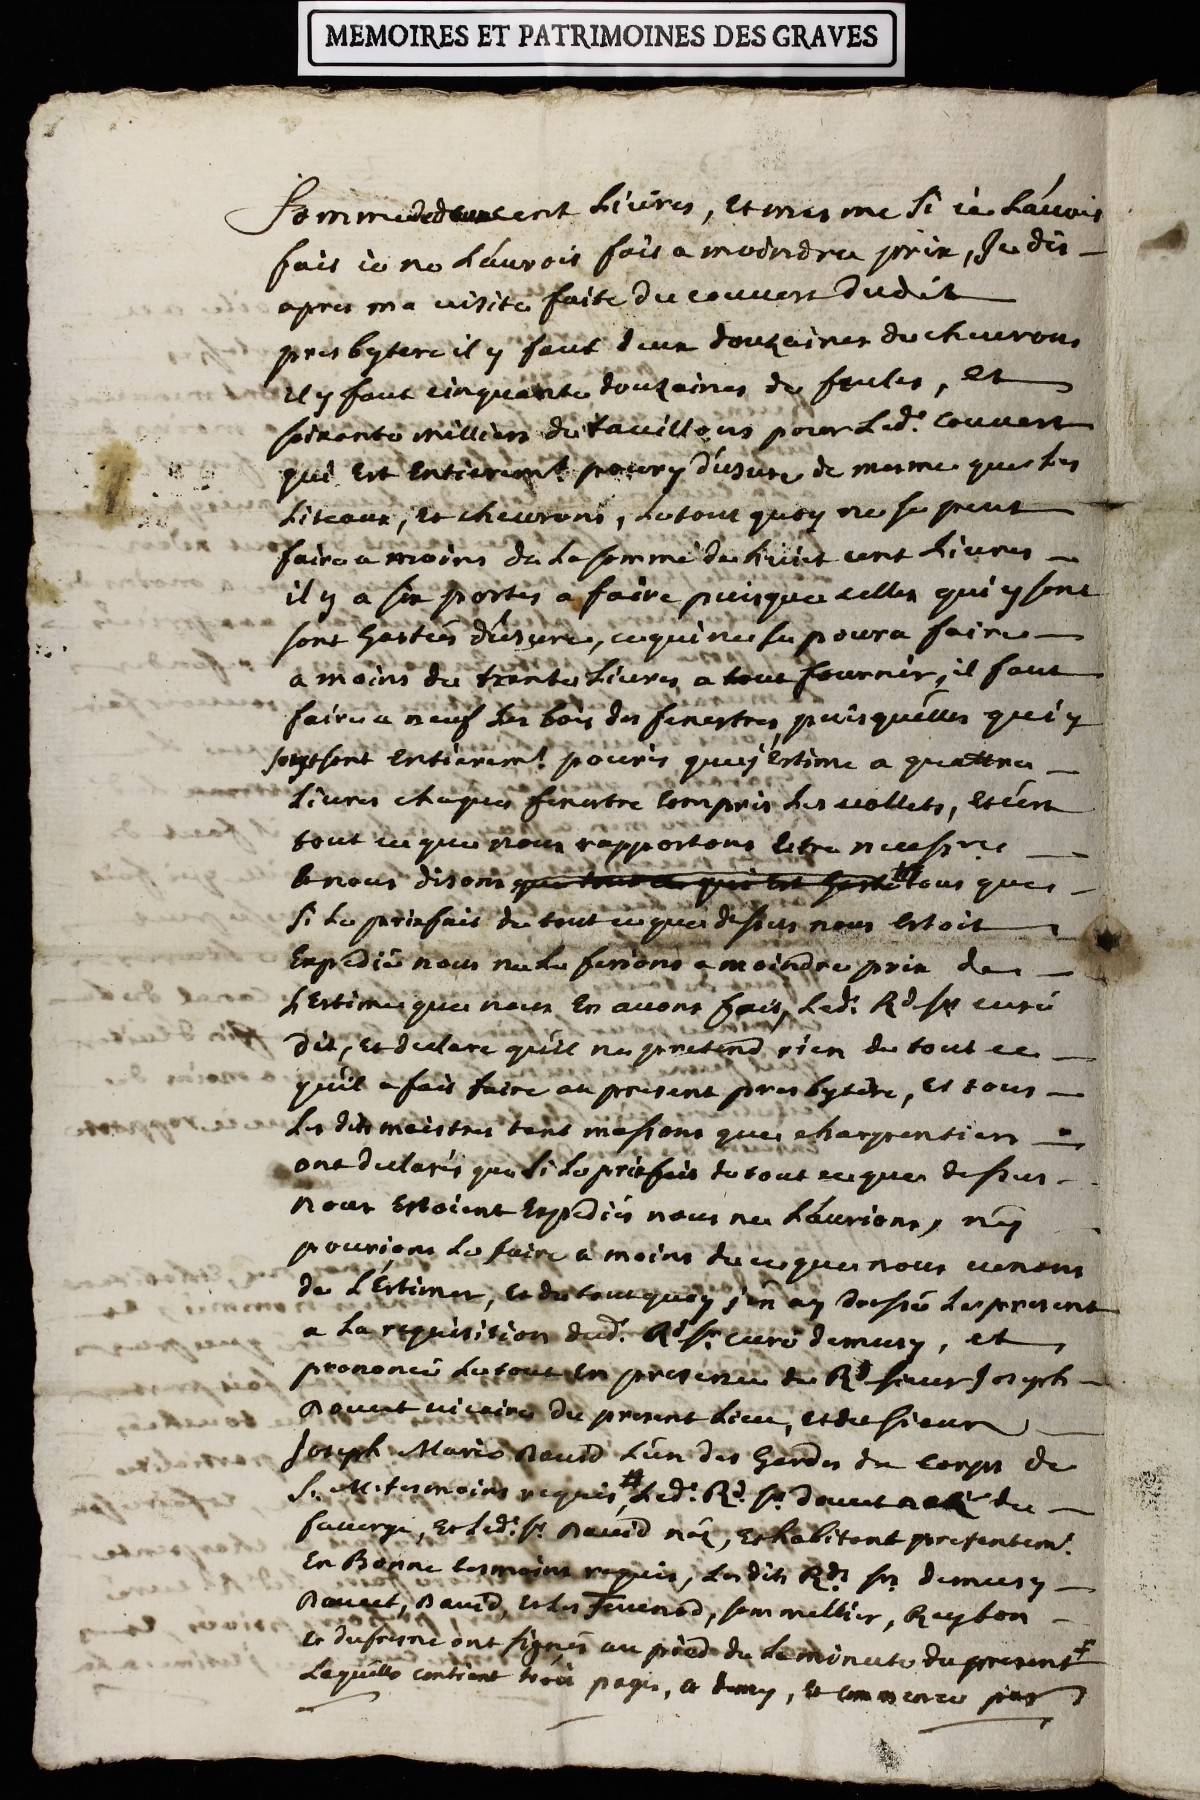 MEMOIRES ET PATRIMOINES DES GRAVES
Somme de deux cent Livres, et mesme si ie L'auois
fait ie ne L'aurois fait a moindre prix, Je dis
apres ma uisite faite du couuert dudit
presbytere il y faut deux douzaines de cheurons
il y faut cinquante douzaines de feules, et
soixante milliers de tauillons pour Led.t couuert
qui est entierem.t poury d'usure de mesme que les
Liteaux, et cheurons, Le tout quoy ne se peut
faire a moins de La somme de huict cent Liures
il y a six portes a faire puisque celles qui y sont
sont Gastées d'usure, ce qui ne se poura faire
a moins de trente Liures a tout fournir, il faut
faire a neuf Les bois des fenestres, puisquelles qui y
sont sont entierem.t pouris que j'estime a quattre
Liures chaque fenestre compris Les uollets, et c'est
tout ce que nous rapportons estre necess.re
et nous disons que tout ce qui est gasté # tous que
si Le prixfait de tout ce que dessus nous estoit
Expedié nous ne Le ferions a moindre prix de
L'Estime que nous En auons fait, Led.t R.d S.r curé
dit, et declare qu'il ne pretend rien de tout ce
qu'il a fait faire au present presbytere, et tous
Les dits maistres tant massons que charpentiers
ont declarés que si Le prixfait de tout ce que dessus
nous Estoient Expediés nous ne L'aurions, n'y
pourions Le faire a moins de ce que nous uenons
de L'Estimer, et de tout quoy j'en ay dressé Le present
a La requisition dud.t R.d S.r curé demusy, et
prononcé Le tout En presence de R.d sieur Joseph
Dauet uicaire du present Lieu, et du sieur
Joseph Marie Dauid L'un des Gardes du Corps de
S. M. tesmoins requis # Led.t R.d S.r Douet natif de
fauerge, et Led.t S.r Dauid né, et habitant presentem.t
En Bonne tesmoins requis, Les dits R.ds S.rs demusy
Dauet, Dauid, et Les Feuenod, sommellier, Reybon
et dufresne ont signés au pied de La minute du present
Laquelle contient trois pages, et demy, et commence par